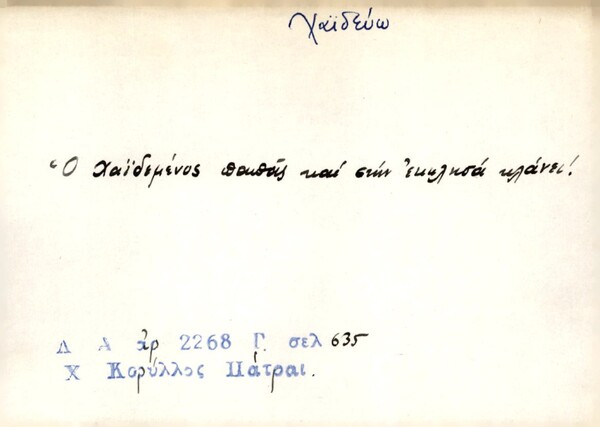 Χαϊδεύω
Ὁ Χαϊδεμένος παπᾶς καί στήν ἐκκλησά κλάνει!
Λ Α ἀρ 2268 Γ. σελ 635
Χ Κορύλλος Πάτραι.